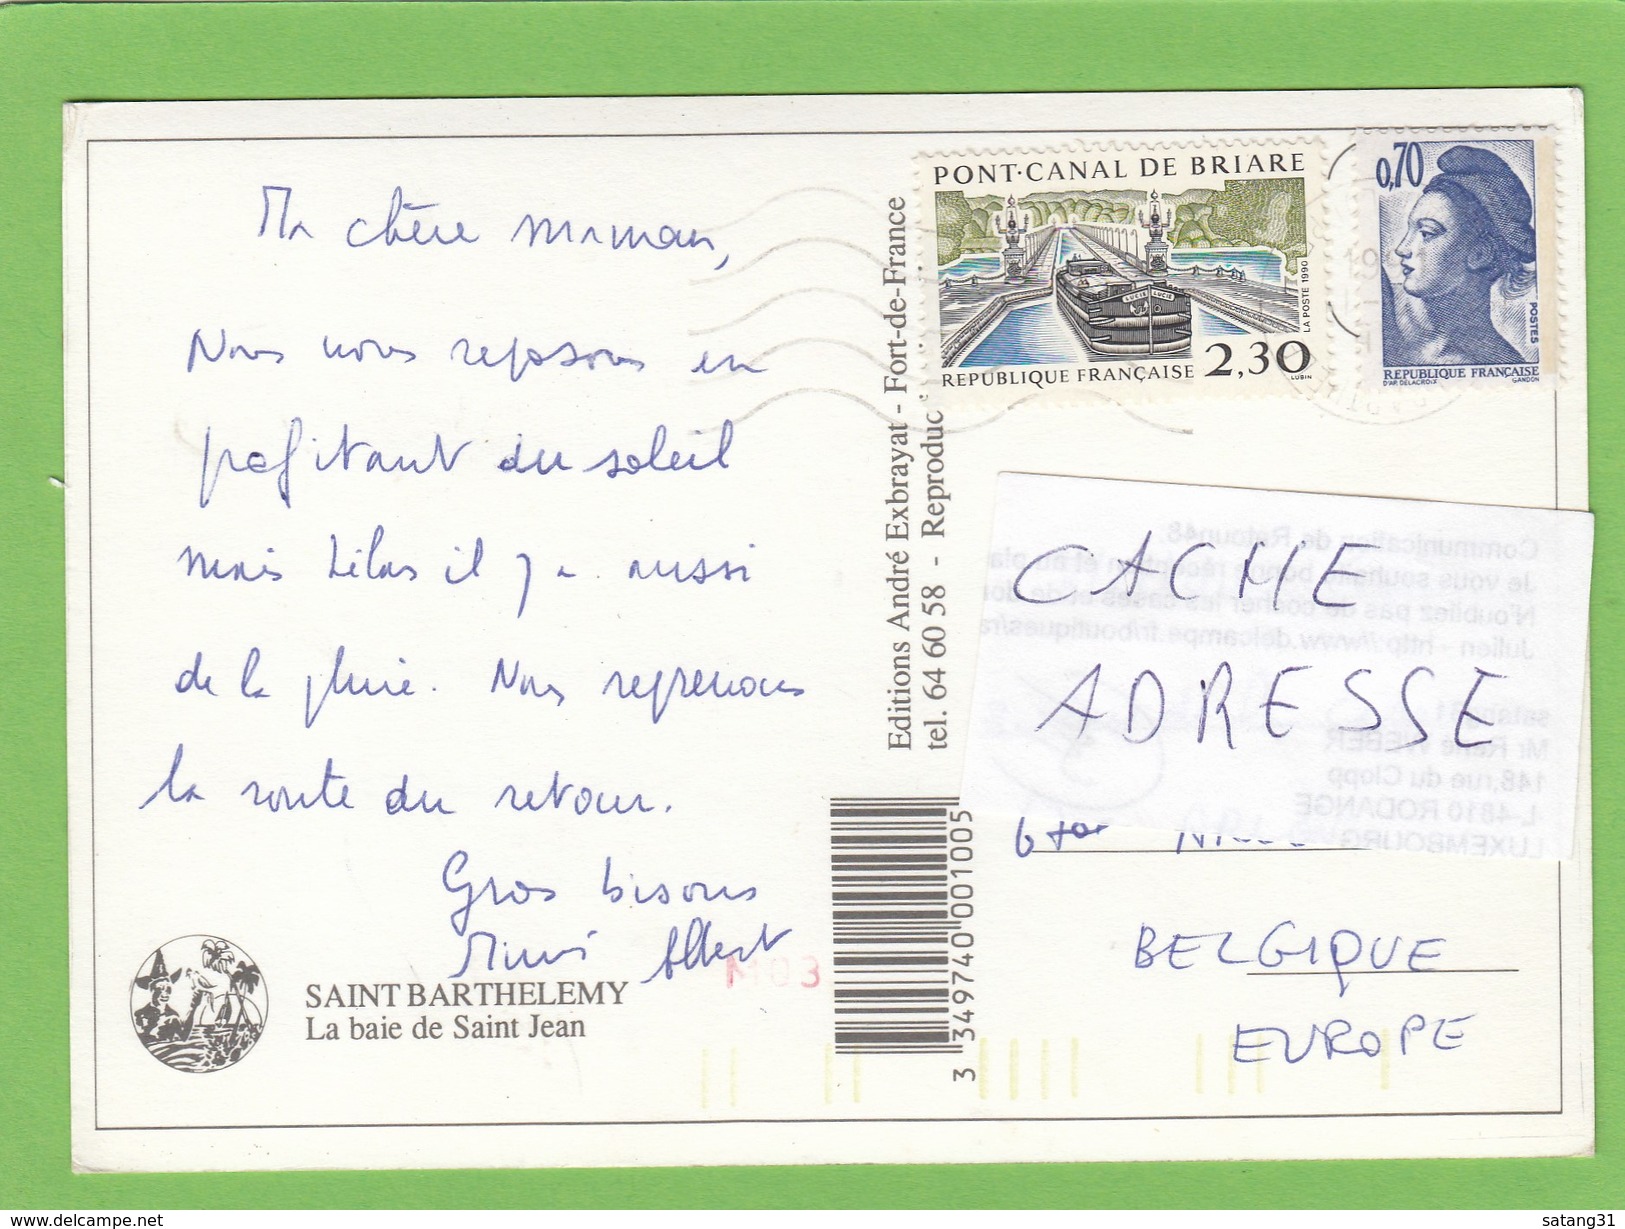 Ma chère maman,
Nous nous reposons en
profitant du soleil
mais hélas il y a aussi
de la pluie. Nous reprenons
la route du retour.
Gros bisous
Albert
SAINT BARTHELEMY
La baie de Saint Jean
Editions André Exbrayat - Fort-de-France
tel. 64 60 58 - Reproduc
3 349740 001005
PONT-CANAL DE BRIARE
LUCIE LUCIE
LA POSTE 1990
2,30
REPUBLIQUE FRANÇAISE
LUBIN
0,70
POSTES
REPUBLIQUE FRANÇAISE
D'AP. DELACROIX GANDON
CACHE
ADRESSE
BELGIQUE
EUROPE
www.delcampe.net
satang31